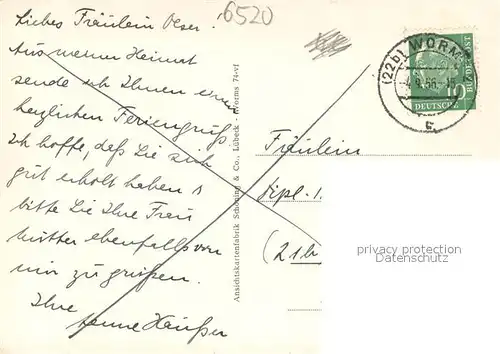 6520
Liebes Fräulein Oeser.
Aus meiner Heimat
sende ich Ihnen einen
herzlichen Feriengruß.
Ich hoffe, daß Sie sich
gut erholt haben u
bitte Sie Ihre Frau
Mutter ebenfalls von
mir zu grüßen.
Ihre
Hanne Häußer
Ansichtskartenfabrik Schöning & Co., Lübeck Worms 74-vf
(22b) WORMS
56
10
BUNDESPOST
DEUTSCHE
Fräulein
Dipl.
(21b
privacy protection
for a save ID